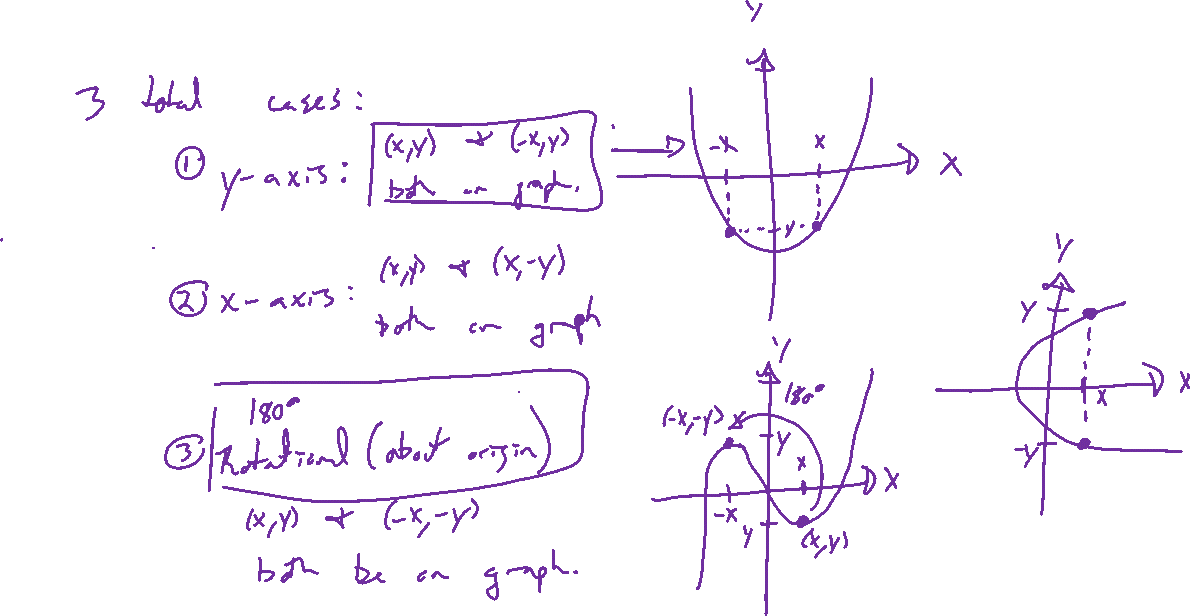 3 total cases:
① y-axis: (x,y) & (-x,y)
both on graph.
② x-axis: (x,y) & (x,-y)
both on graph
③ 180°
Rotational (about origin)
(x,y) & (-x,-y)
both be on graph.
Y
-x x
X
y
Y
180°
(-x,-y)
y
x
X
-x
y
(x,y)
Y
y
x
X
-y